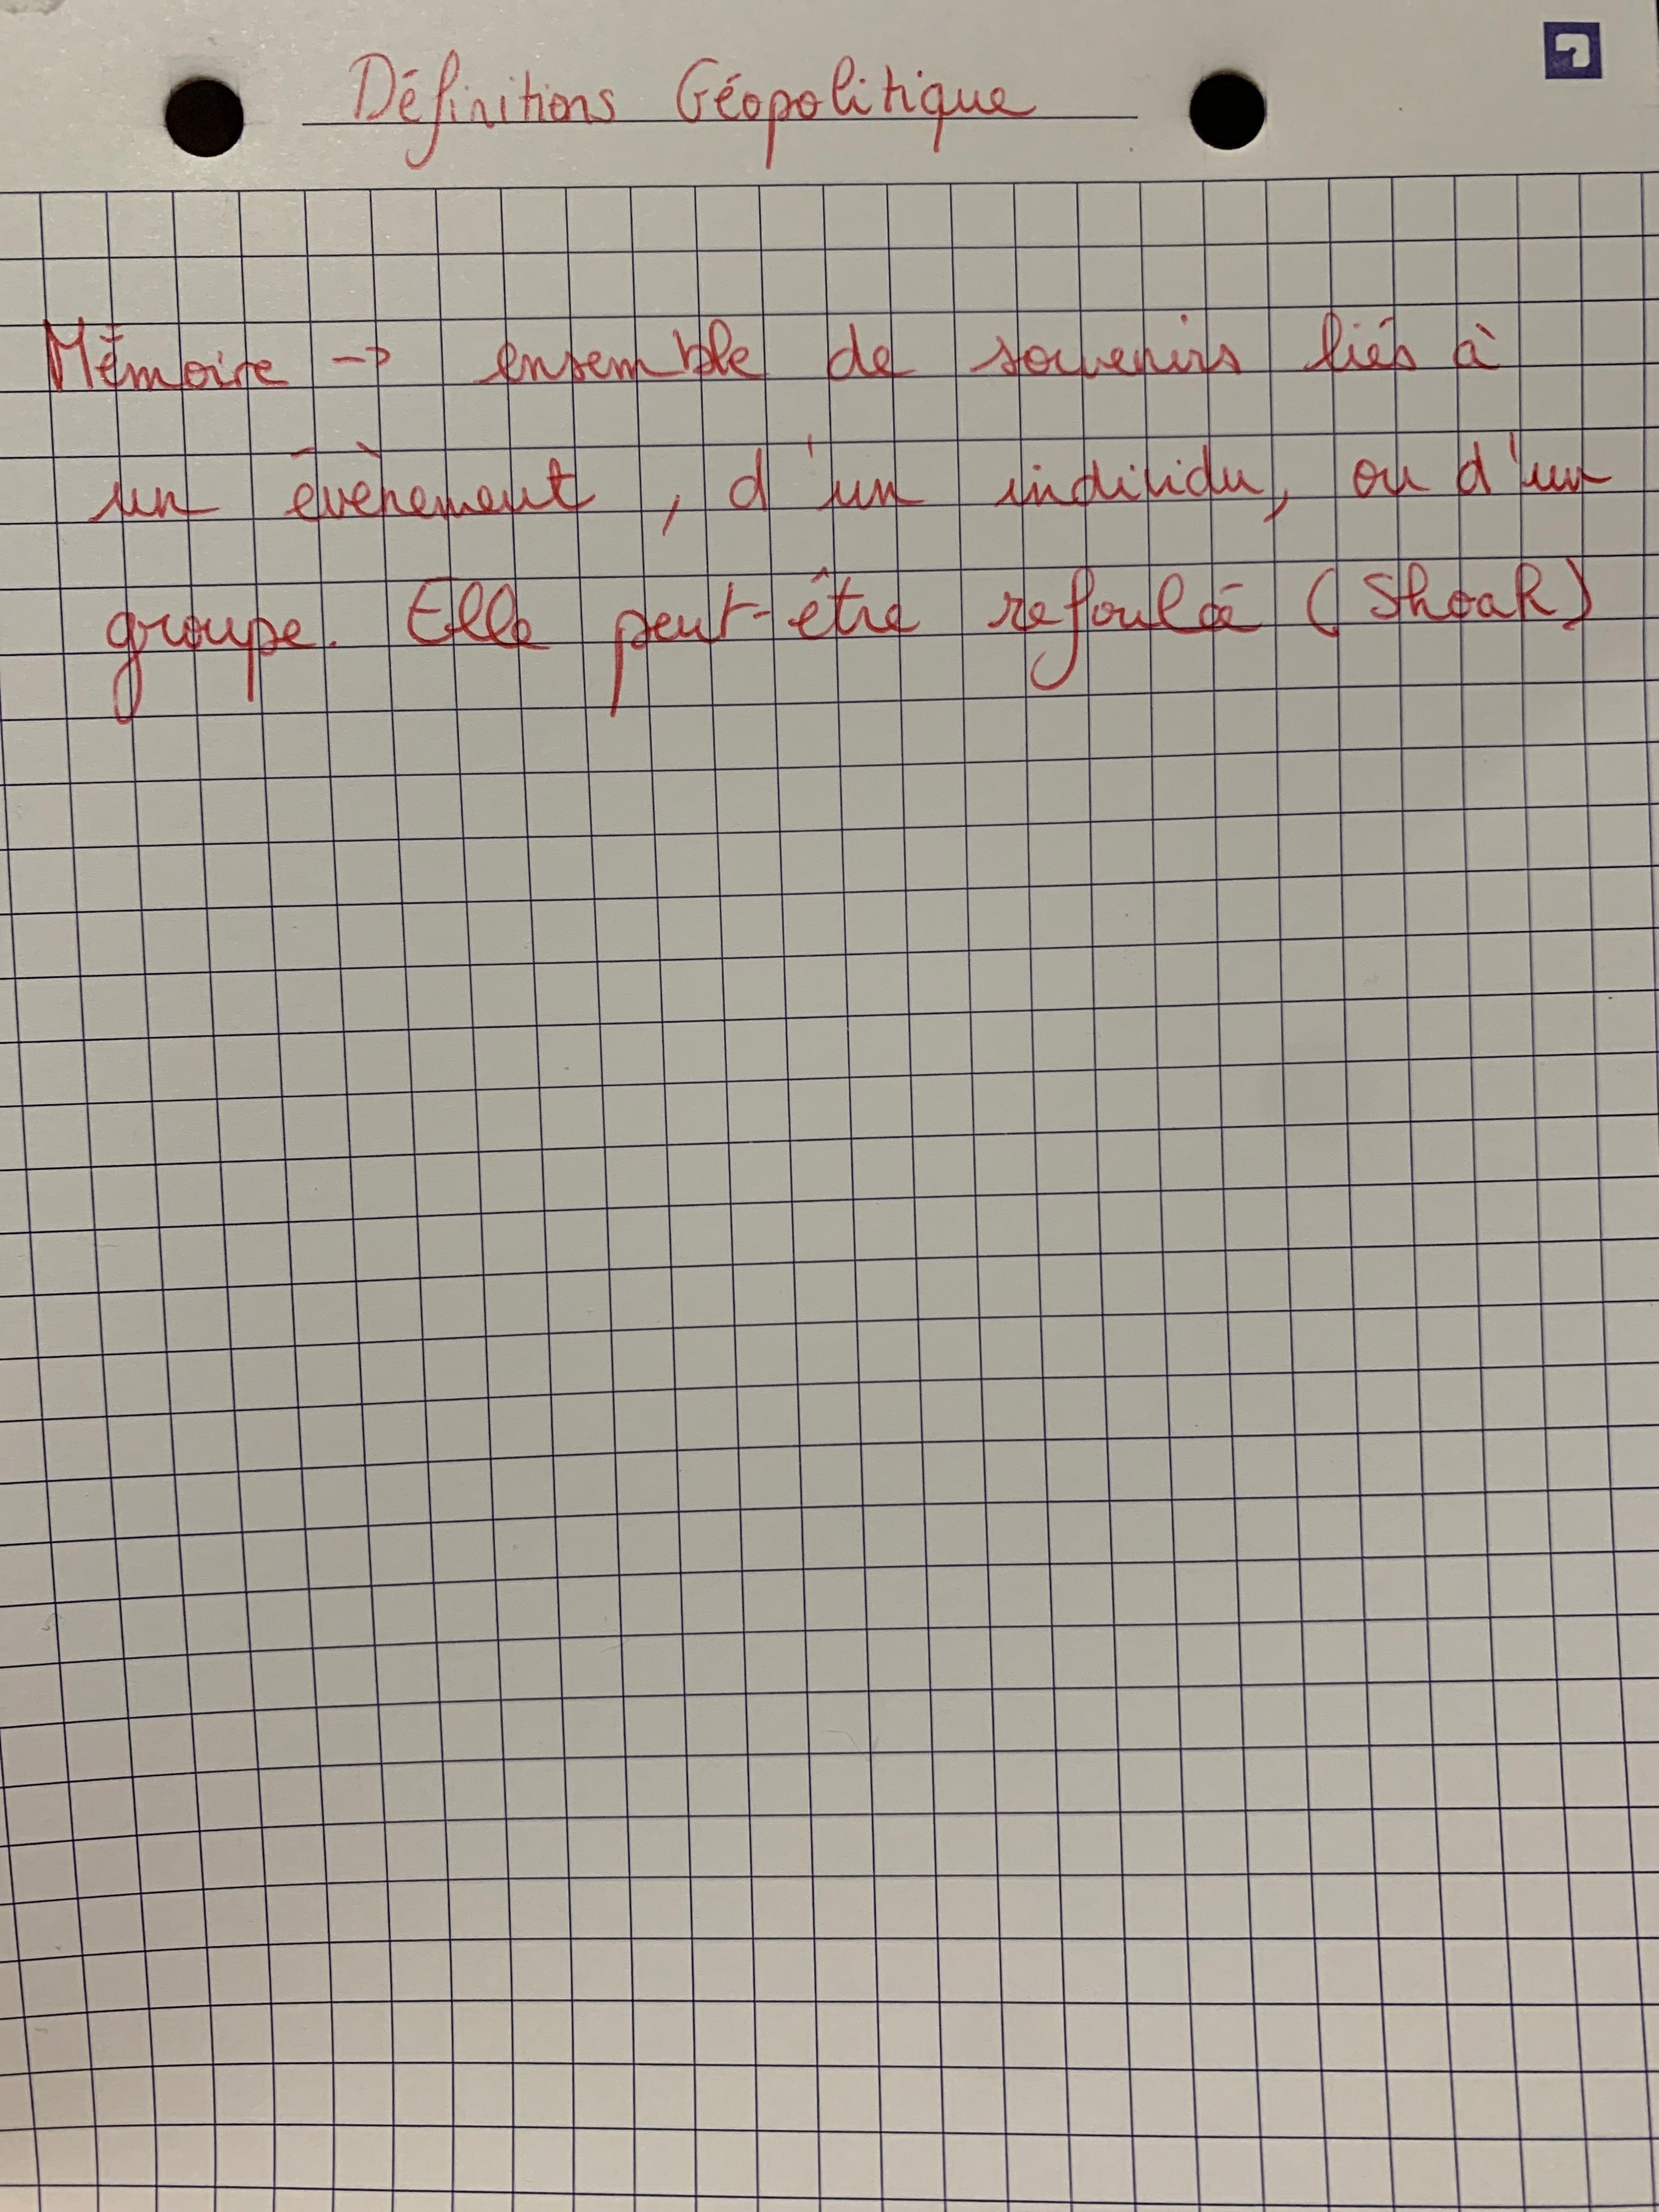 Définitions Géopolitique
Mémoire → ensemble de souvenirs liés à
un évènement, d'un individu, ou d'un
groupe. Elle peut-être refoulée (Shoah)